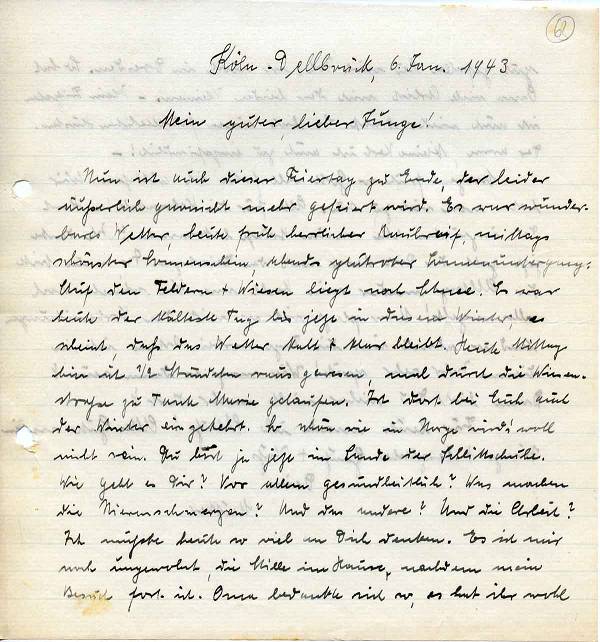 62
Köln-Dellbrück, 6. Jan. 1943
Mein guter, lieber Junge!
Nun ist auch dieser Feiertag zu Ende, der leider
äußerlich garnicht mehr gefeiert wird. Es war wunder-
bares Wetter, heute früh herrlicher Rauhreif, mittags
schönster Sonnenschein, abends glutroter Sonnenuntergang.
Auf den Feldern + Wiesen liegt noch Schnee. Es war
heute der kälteste Tag bis jetzt in diesem Winter, es
scheint, daß das Wetter kalt + klar bleibt. Heute Mittag
bin ich 1/2 Stündchen raus gewesen, mal durch die Wiesen-
strasse zu Tante Marie gelaufen. Ist dort bei Euch auch
der Winter eingekehrt. So schön wie in Norge wird's wohl
nicht sein. Du bist ja jetzt im Lande der Schlittschuhe.
Wie geht es Dir? Vor allem gesundheitlich? Was machen
die Nierenschmerzen? Und das andere? Und die Arbeit?
Ich musste heute so viel an Dich denken. Es ist mir
noch ungewohnt, die Stille im Hause, nachdem mein
Besuch fort ist. Oma bedankte sich so, es hat ihr wohl